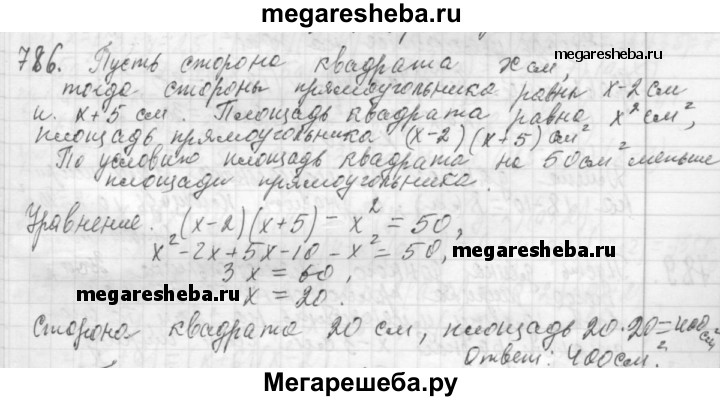 megaresheba.ru
786. Пусть сторона квадрата x см,
megaresheba.ru
тогда стороны прямоугольника равны x-2 см
и x+5 см. Площадь квадрата равна x² см²,
площадь прямоугольника (x-2)(x+5) см²
По условию площадь квадрата на 50 см² меньше
площади прямоугольника.
Уравнение. (x-2)(x+5) - x² = 50,
x² - 2x + 5x - 10 - x² = 50,
megaresheba.ru
3x = 60,
megaresheba.ru
x = 20.
Сторона квадрата 20 см, площадь 20·20=400 см²
Ответ: 400 см².
Мегарешеба.ру